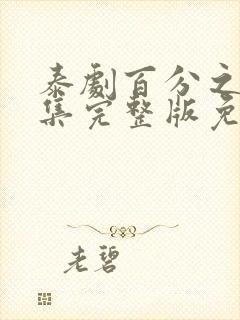 泰劇百分之
集完整版免
老碧